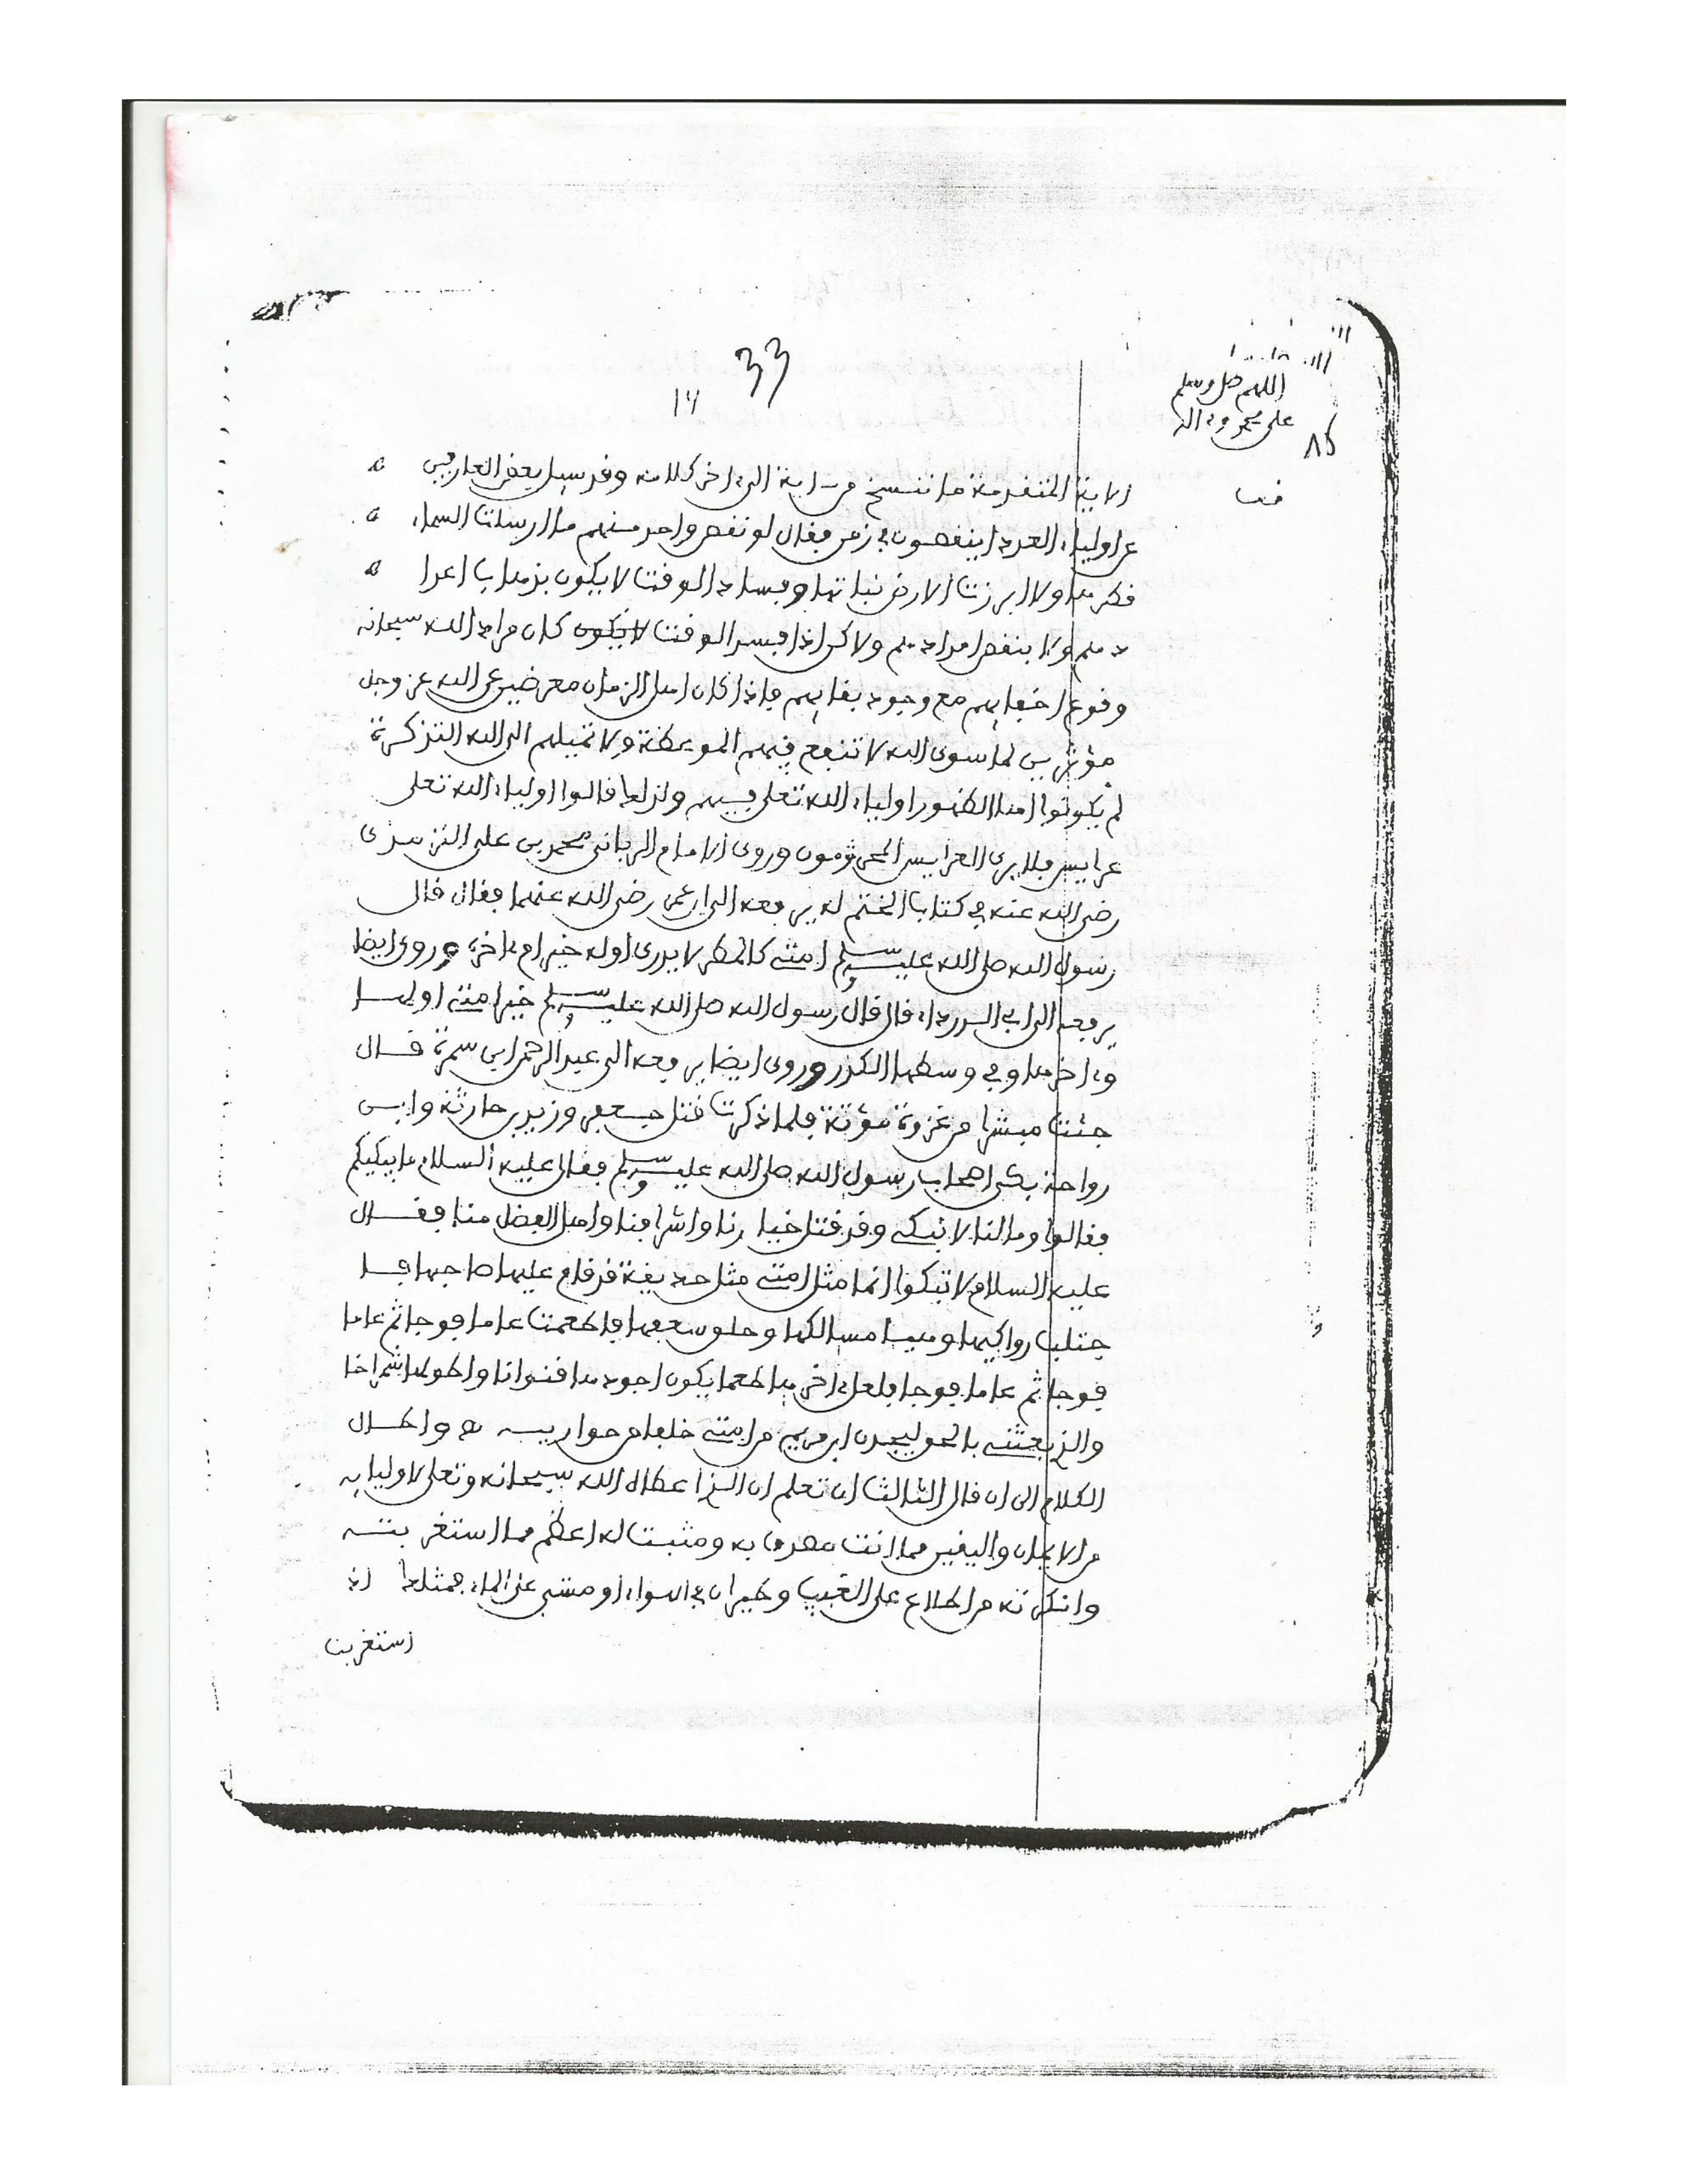 33
14
اللهم صل وسلم
على محمد وءاله
85
قف
الاية المتقدمة ما ننسخ من ـاية الى ءاخر كلامه وقد سيل بعض العارفين
عن اولياء العدد اينقصون في زمن فقال لو نقص واحد منهم ما ارسلت السماء
قطرها ولا ابرزت الارض نباتها وفساد الوقت لا يكون بذهاب اعدا
دهم ولا بنقص امدادهم ولاكن اذا فسد الوقت لا يكون كان مراد الله سبحانه
وقوع اختفايهم مع وجود بقايهم فاذا كان اهل الزمان معرضين عن الله عز وجل
مؤثرين لما سوى الله لا تنفع فيهم الموعظة ولا تميلهم الى الله التذكرة
لم يكونوا اهلا لظهور اولياء الله تعلى فيهم ولذلك قالوا اولياء الله تعلى
عرايس فلا يرى العرايس المجرمون وروى الامام الرباني محمد بن على الترمذى
رضى الله عنه في كتاب الختم له يرفعه الى ابن عمر رضى الله عنهما فقال قال
رسول الله صلى الله عليه وسلم امتي كالمطر لا يدرى اوله خير ام ءاخره وروى ايضا
يرفعه الى ابي الدرداء قال قال رسول الله صلى الله عليه وسلم خير امتي اولها
وءاخرها وفي وسطها الكدر وروى ايضا يرفعه الى عبد الرحمن بن سمرة قال
جئت مبشرا من غزوة مؤتة فلما ذكرت قتل جعفر وزيد بن حارثة وابن
رواحة بكى اصحاب رسول الله صلى الله عليه وسلم فقال عليه السلام ما يبكيكم
فقالوا وما لنا لا نبكي وقد قتل خيارنا واشرافنا واهل الفضل منا فقال
عليه السلام لا تبكوا انما مثل امتي مثل حديقة قد قام عليها صاحبها فا
جتلب رواكيها وهيا مسالكها وحلق سعفها فاطعمت عاما فوجا ثم عاما
فوجا ثم عاما فوجا فلعل ءاخرها طعما يكون اجودها قنوانا واطولها شمراخا
والذي بعثني بالحق ليجدن ابن مريم من امتي خلفا من حواريه واطال
الكلام الى ان قال الثالث ان تعلم ان الذي اعطاه الله سبحانه وتعلى لاوليايه
من الايمان واليقين مما انت مصدق به ومثبت له اعظم مما استغربته
وانكرته من اطلاع على الغيب وطيران في الهواء او مشي على الماء فمثلك اذا
استغربت